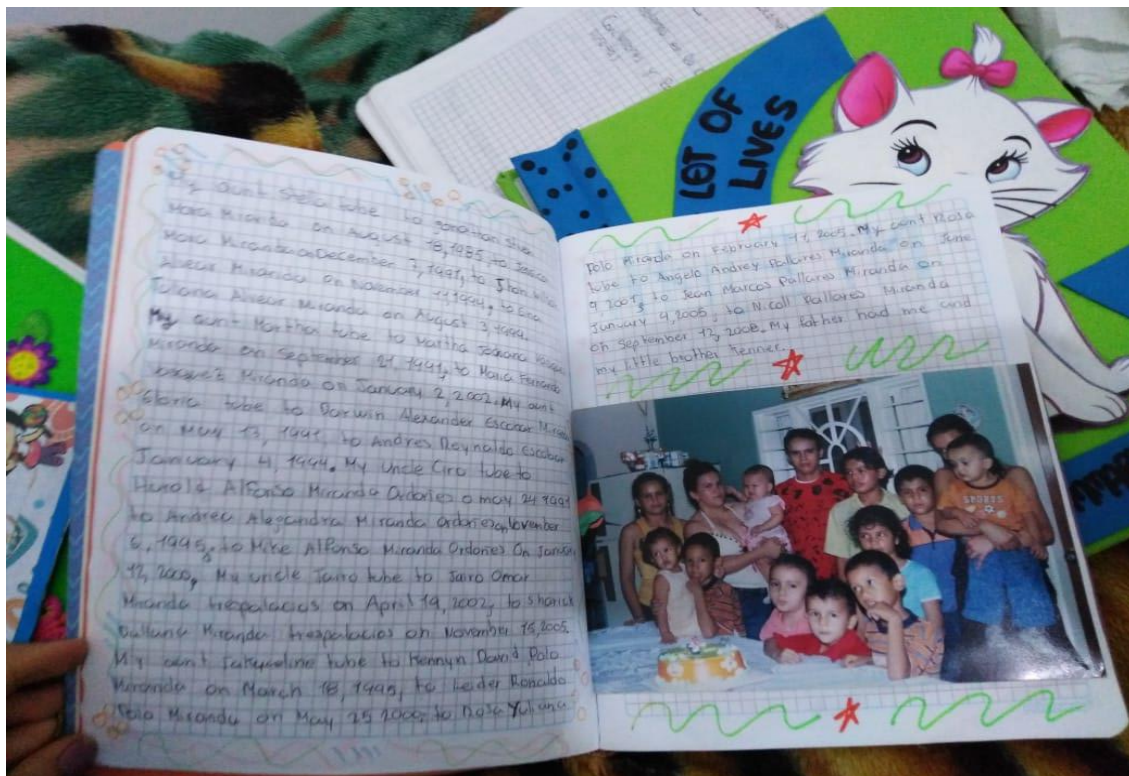 My aunt Stella tube to Jonathan Stiven
Mora Miranda on August 18, 1985, to Jessica
Mora Miranda on December 7, 1991, to Jhon
Alvear Miranda on November 1994, to
Juliana Alvear Miranda on August 3, 1999.
My aunt Martha tube to Martha Johana
Miranda on September 21, 1991, to Maria Fernanda
Miranda on January 2, 2002. My aunt
Gloria tube to Darwin Alexander Escobar
on May 13, 1991, to Andres Reynaldo Escobar
January 4, 1994. My uncle Ciro tube to
Harold Alfonso Miranda Ordoñes o may 24 1991
to Andrea Alegandra Miranda Ordoñes November
6, 1995, to Mike Alfonso Miranda Ordoñes On
12, 2000, My uncle Jairo tube to Jairo Omar
Miranda trespalacios on April 19, 2002, to Sharick
Dallana Miranda trespalacios on November 15, 2005.
My aunt Jakyceline tube to Kennyn David Polo
Miranda on March 18, 1995, to Leider Ronaldo
Polo Miranda on May 25 2000, to Rosa Yuliana
Polo Miranda on February 11, 2005. My aunt Rosa
tube to Angelo Andrey Pallares Miranda on June
9, 2001, to Jean Marcos Pallares Miranda on
January 9, 2006, to Nicoll Pallares Miranda
on September 12, 2008. My father had me and
my little brother Jenner.
LET OF
LIVES
SPORTS